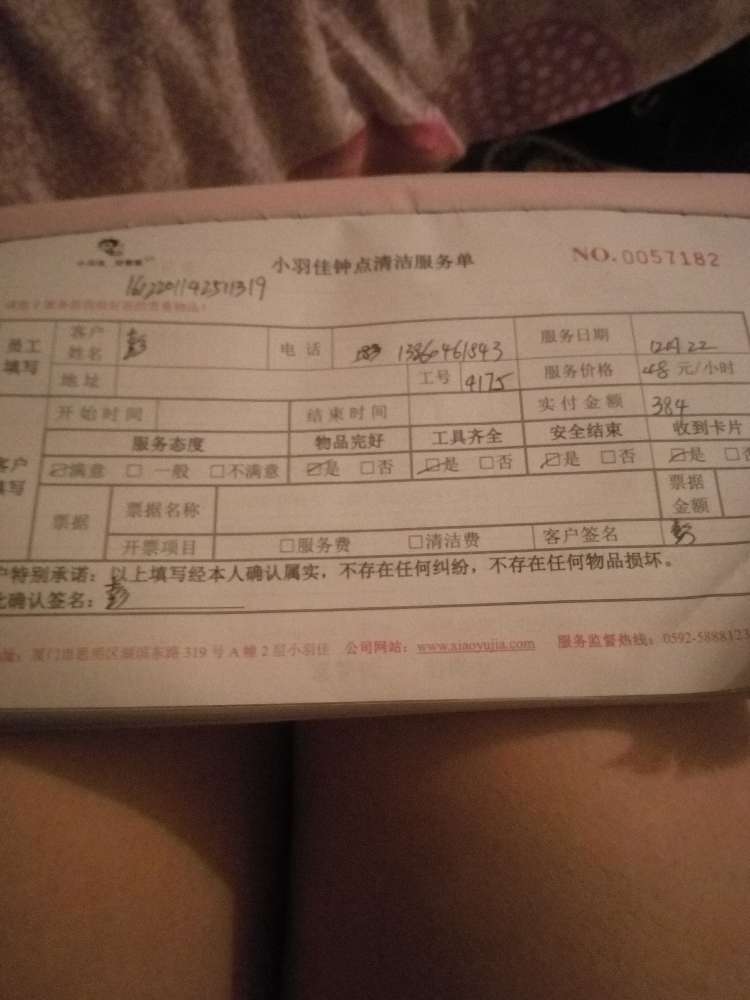 小羽佳钟点清洁服务单 NO.0057182
1612201142511319
员工填写 客户姓名 彭 电话 13860461843 服务日期 12月22
地址 工号 4175 服务价格 48元/小时
开始时间 结束时间 实付金额 384
服务态度 物品完好 工具齐全 安全结束 收到卡片
☑满意 □一般 □不满意 ☑是 □否 ☑是 □否 ☑是 □否 ☑是 □否
票据 票据名称 票据金额
开票项目 □服务费 □清洁费 客户签名 彭
户特别承诺：以上填写经本人确认属实，不存在任何纠纷，不存在任何物品损坏。
确认签名：彭
厦门市思明区湖滨东路319号A幢2层小羽佳 公司网站：www.xiaoyujia.com 服务监督热线：0592-5888123